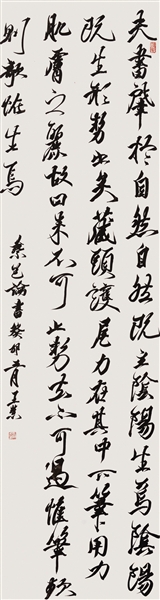 夫書肇於自然自然既立陰陽生焉陰陽
既生形勢出矣藏頭護尾力在其中下筆用力
肌膚之麗故曰來不可止勢去不可遏惟筆軟
則奇怪生焉
蔡邕論書癸卯